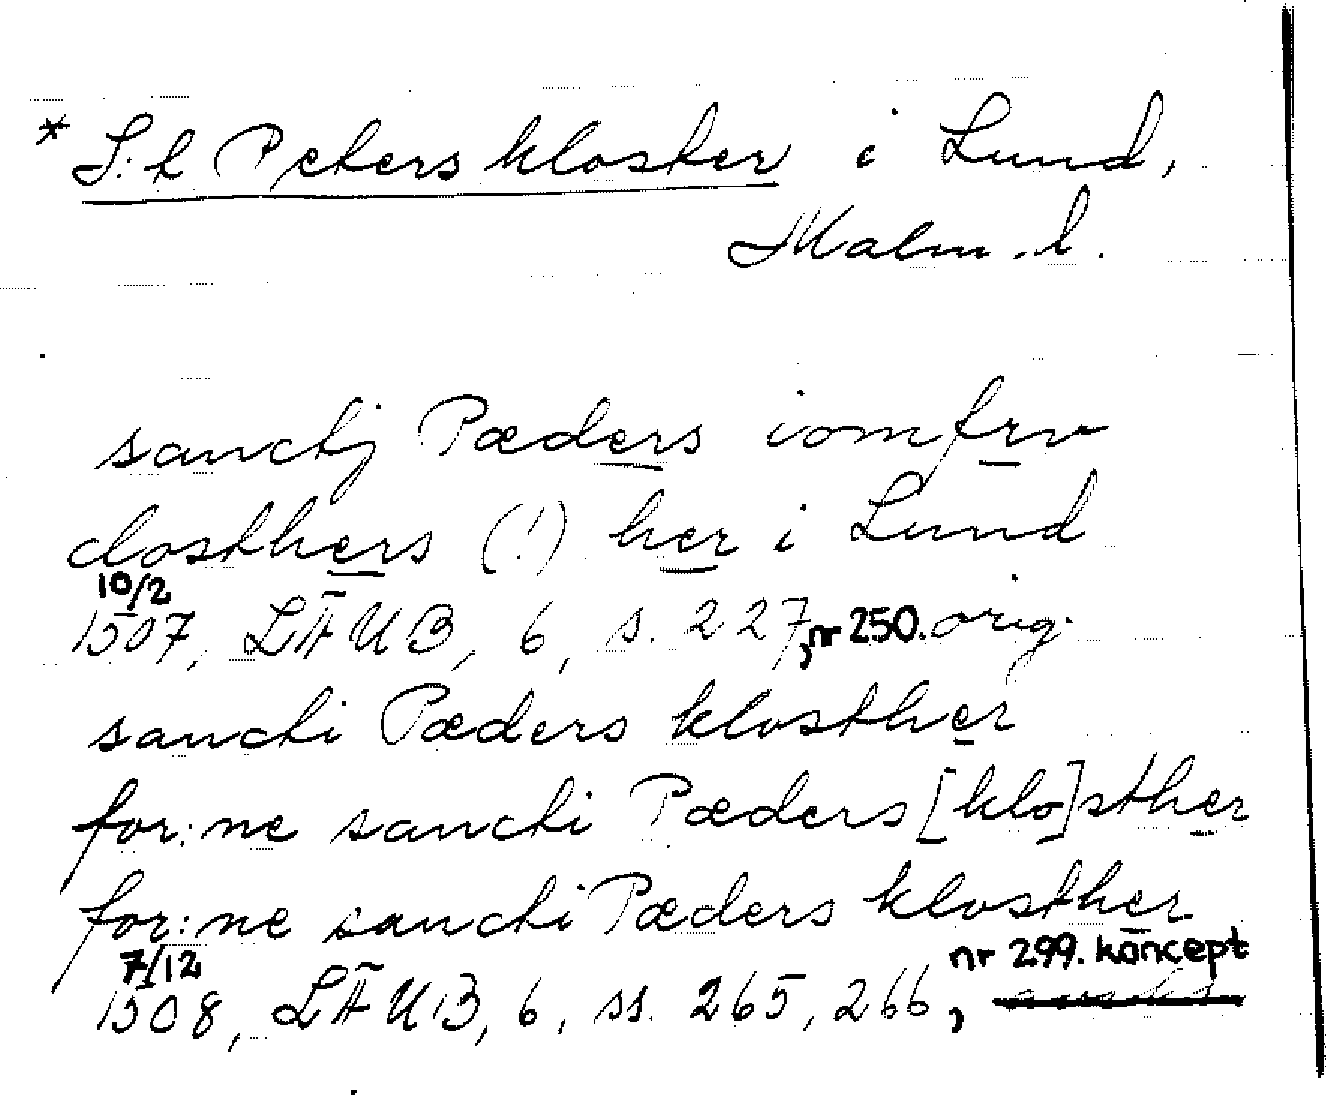 * S:t Peters kloster i Lund,
Malm. l.
sanctj Pæders iomfrv
closthers (!) her i Lund
10/2
1507, LÄUB, 6, s. 227, nr 250. orig.
sancti Pæders klosther
for:ne sancti Pæders [klo]sther
for:ne sancti Pæders klosther
7/12 nr 299. koncept
1508, LÄUB, 6, ss. 265, 266,